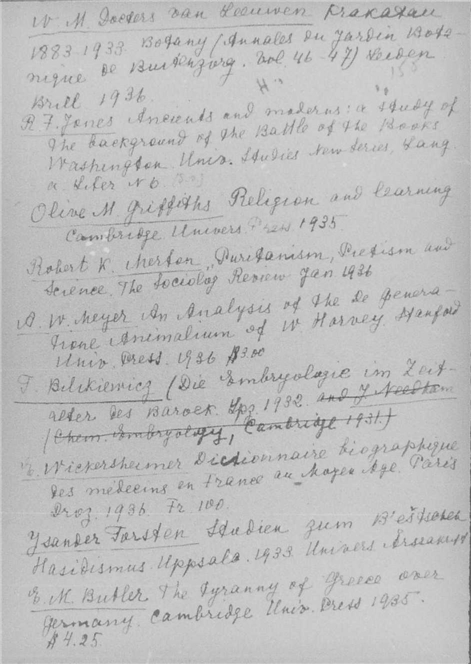 W. M. Docters van Leeuwen Krakatau
1883-1933 Botany (Annales du Jardin Bota-
nique de Buitenzorg. Vol. 46-47) Leiden
Brill 1936.
R. F. Jones Ancients and moderns: a study of
the background of the Battle of the Books
Washington Univ. Studies New Series, Lang.
a Liter N 6.
Olive M. Griffiths Religion and learning
Cambridge Univers Press 1935
Robert K. Merton, "Puritanism, Pietism and
Science. The Sociolog Review Jan 1936
A. W. Meyer An Analysis of the De Genera-
tione Animalium of W. Harvey. Stanford
Univ. Press. 1936 $3.00
T. Bilikiewicz (Die Embryologie im Zeit-
alter des Barock. Lpz. 1932. and J. Needham
(Chem. Embryology, Cambridge 1931.)
E. Wickersheimer Dictionnaire biographique
des médecins en France au Moyen Age. Paris
Droz. 1936. Fr 100.
Ysander Torsten Studien zum B'eštschen
Hasidismus. Uppsala. 1933 Univers Årsskrift
E. M. Butler The Tyranny of Greece over
Germany. Cambridge Univ. Press 1935.
$4.25